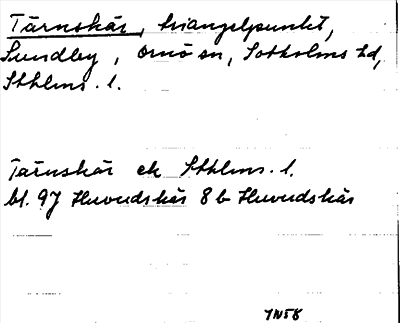 Tärnskär, triangelpunkt,
Sundby, Ornö sn, Sotholms hd,
Sthlms. l.
Tärnskär ek Sthlms. l.
bl. 97 Huvudskär 8 b Huvudskär
IN58